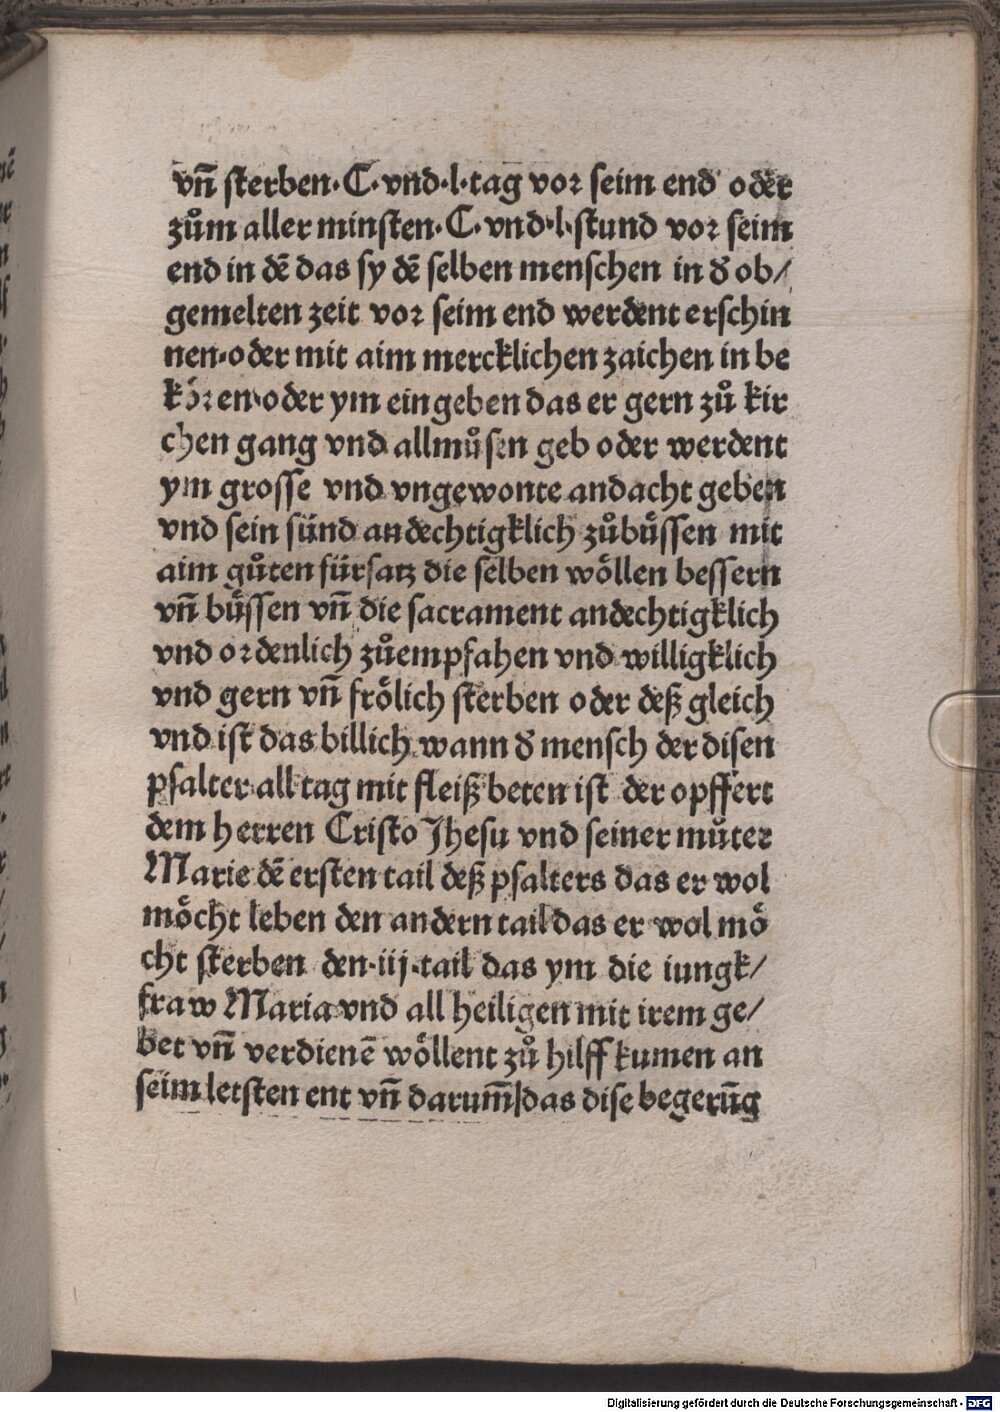 vn̄ sterben·C·vnd·l·tag vor seim end oder
zům aller minsten·C·vnd·l·stund vor seim
end in dē das sy dē selben menschen in d̕ ob/
gemelten zeit vor seim end werdent erschin
nen·oder mit aim mercklichen zaichen in be
kören·oder ym ein geben das er gern zů kir
chen gang vnd allmůsen geb oder werdent
ym grosse vnd vngewonte andacht geben
vnd sein sünd andechtigklich zůbüssen mit
aim gůten fürsatz die selben wöllen bessern
vn̄ büssen vn̄ die sacrament andechtigklich
vnd ordenlich zůempfahen vnd willigklich
vnd gern vn̄ frölich sterben oder deß gleich
vnd ist das billich wann d̕ mensch der disen
psalter all tag mit fleiß beten ist der opffert
dem herren Cristo Jhesu vnd seiner můter
Marie dē ersten tail deß psalters das er wol
möcht leben den andern tail das er wol mö
cht sterben den·iij·tail das ym die iungk/
fraw Maria vnd all heiligen mit irem ge/
bet vn̄ verdienē wöllent zů hilff kumen an
seim letsten ent vn̄ darum̄ das dise begerūg
Digitalisierung gefördert durch die Deutsche Forschungsgemeinschaft - DFG